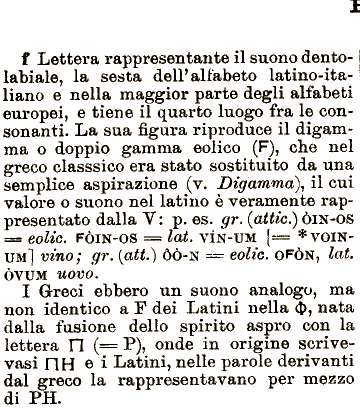 f Lettera rappresentante il suono dento-
labiale, la sesta dell'alfabeto latino-ita-
liano e nella maggior parte degli alfabeti
europei, e tiene il quarto luogo fra le con-
sonanti. La sua figura riproduce il digam-
ma o doppio gamma eolico (F), che nel
greco classsico era stato sostituito da una
semplice aspirazione (v. Digamma), il cui
valore o suono nel latino è veramente rap-
presentato dalla V: p. es. gr. (attic.) ÒIN-OS
= eolic. FÒIN-OS = lat. VÌN-UM [= *VOIN-
UM] vino; gr. (att.) ÒÒ-N = eolic. OFÒN, lat.
ÒVUM uovo.
I Greci ebbero un suono analogo, ma
non identico a F dei Latini nella Φ, nata
dalla fusione dello spirito aspro con la
lettera Π (= P), onde in origine scrive-
vasi ΠΗ e i Latini, nelle parole derivanti
dal greco la rappresentavano per mezzo
di PH.